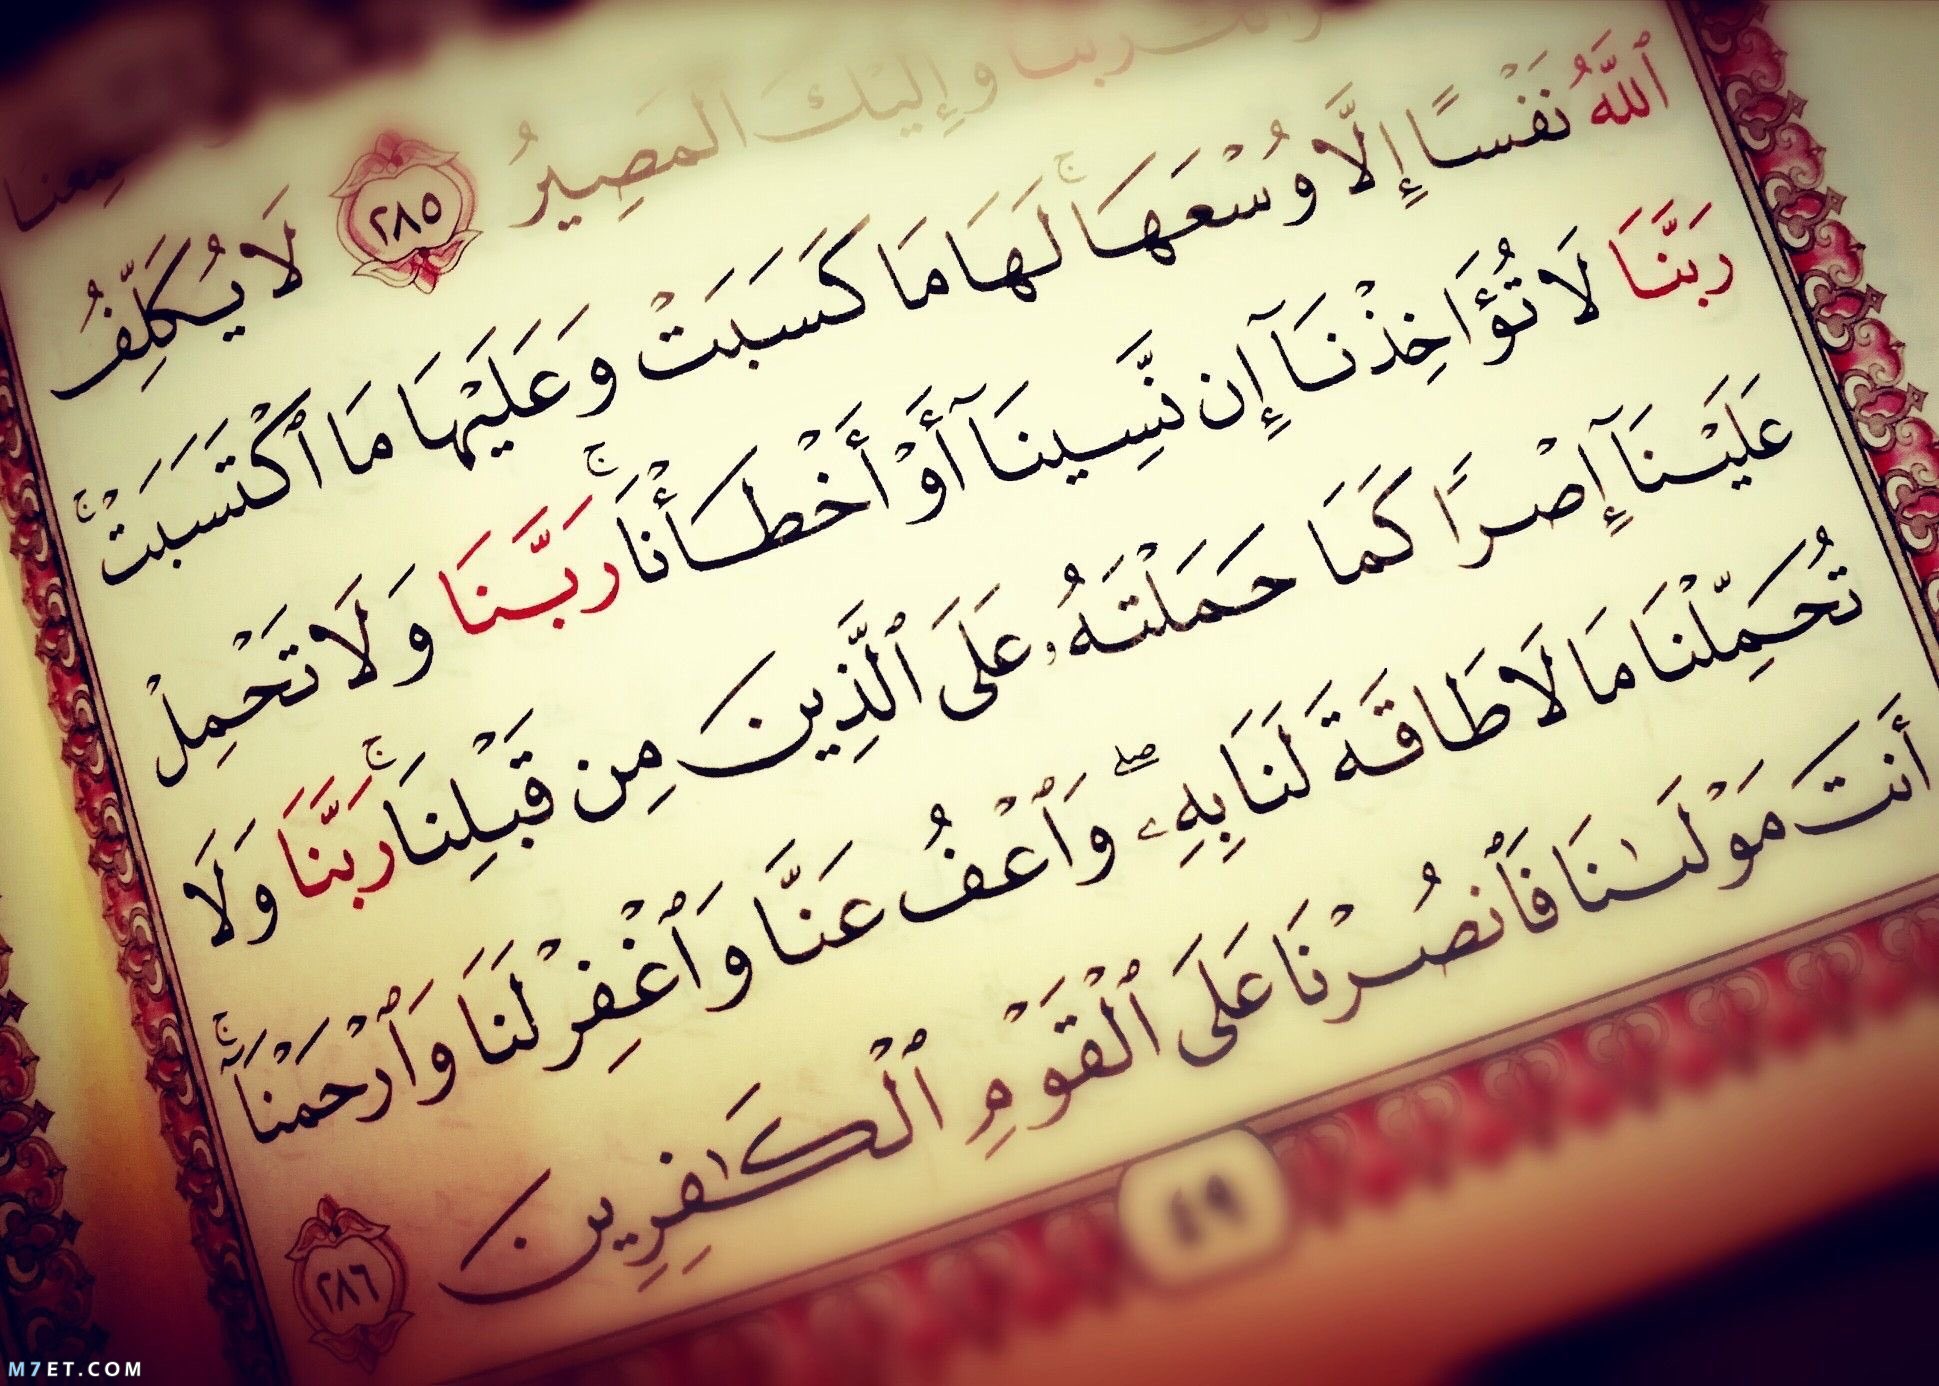 رَبَّنَا وَإِلَيْكَ الْمَصِيرُ ٢٨٥ لَا يُكَلِّفُ
ٱللَّهُ نَفْسًا إِلَّا وُسْعَهَا ۚ لَهَا مَا كَسَبَتْ وَعَلَيْهَا مَا ٱكْتَسَبَتْ ۚ
رَبَّنَا لَا تُؤَاخِذْنَآ إِن نَّسِينَآ أَوْ أَخْطَأْنَا ۚ رَبَّنَا وَلَا تَحْمِلْ
عَلَيْنَآ إِصْرًا كَمَا حَمَلْتَهُۥ عَلَى ٱلَّذِينَ مِن قَبْلِنَا ۚ رَبَّنَا وَلَا
تُحَمِّلْنَا مَا لَا طَاقَةَ لَنَا بِهِۦ ۖ وَٱعْفُ عَنَّا وَٱغْفِرْ لَنَا وَٱرْحَمْنَآ ۚ
أَنتَ مَوْلَىٰنَا فَٱنصُرْنَا عَلَى ٱلْقَوْمِ ٱلْكَـٰفِرِينَ ٢٨٦
٤٩
M7ET.COM